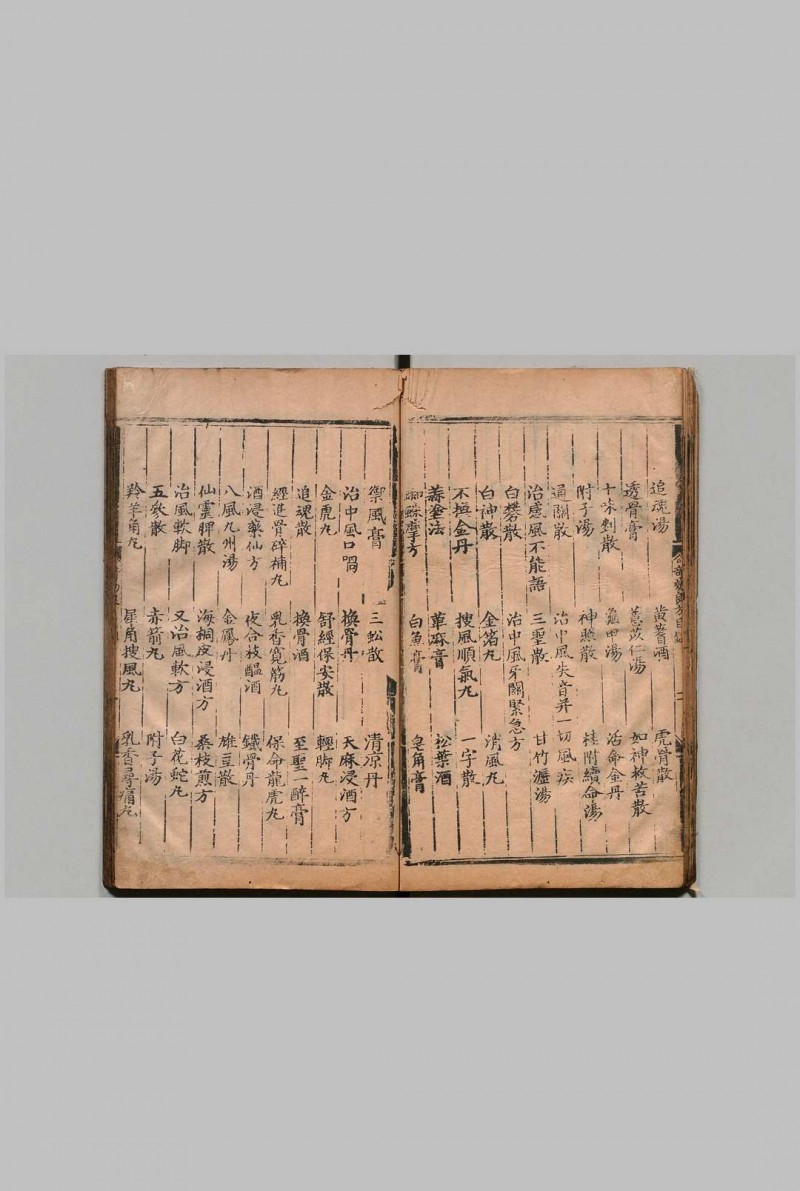 追魂湯 黃耆酒 虎骨散
透骨膏 薏苡仁湯 如神救苦散
十味剉散 龜甲湯 活命金丹
附子湯 神照散 桂附續命湯
通關散 治中風失音并一切風疾
治瘖風不能語 三聖散 甘竹瀝湯
白礬散 治中風牙關緊急方
白神散 金箔丸 消風丸
不換金丹 搜風順氣丸 一字散
蒜塗法 萆麻膏 松葉酒
摩方 白魚膏 皂角膏
禦風膏 三蚣散 清凉丹
治中風口喎 換骨丹 天麻浸酒方
金虎丸 舒經保安散 輕脚丸
追魂散 換骨酒 至聖一醉膏
經進骨碎補丸 乳香寬筋丸 保命龍虎丸
酒浸藥仙方 夜合枝醞酒 鐵骨丹
八風九州湯 金鳳丹 雄豆散
仙靈脾散 海桐皮浸酒方 桑枝煎方
治風軟脚 又治風軟方 白花蛇丸
五參散 赤箭丸 附子湯
羚羊角丸 犀角搜風丸 乳香尋痛丸